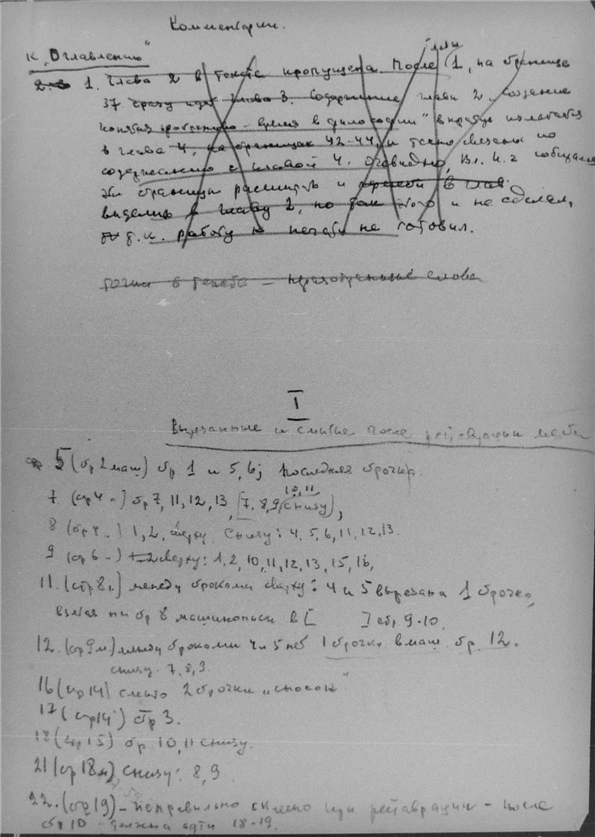 Комментарии.
К „Оглавлению"
1. Глава 2 в тексте пропущена. После 1, на странице
37 сразу идет глава 3. Содержание главы 2 создание
понятия пространство-время в философии" вкратце излагается
в главе 4, на страницах 42-44, и тесно связаны по
содержанию с главой 4. Очевидно, Вл. И. и собирался
эти страницы расширить и
выделить в главу 2, но так этого и не сделал,
т.к. работу к печати не готовил.
точки в тексте — неразобранные слова
I
Вырезанные и смытые после реставрации места
5 (стр 2 маш) стр 1 и 5, 6; последняя строчка.
10, 11
7 (стр 4 „) стр 7, 11, 12, 13, [7, 8, 9 (снизу),
8 (стр „) 1, 2, сверху снизу: 4, 5, 6, 11, 12, 13.
9 (стр 6 „) сверху: 1, 2, 10, 11, 12, 13, 15, 16,
11. (стр 8 „) между строками сверху: 4 и 5 вырезана 1 строчка,
взятая на стр 8 машинописи в [ ] стр. 9-10.
12. (стр 9 м) между строками 4 и 5 нет 1 строчки в маш. стр. 12.
снизу 7, 8, 9.
16 (стр 14) смыто 2 строчки „сносок"
17 (стр 14) стр 3.
18 (стр 15) стр. 10, 11 снизу.
21 (стр 18 м) снизу: 8, 9
22. (стр 19) – неправильно склеено при реставрации – после
стр 10 должна идти 18-19.